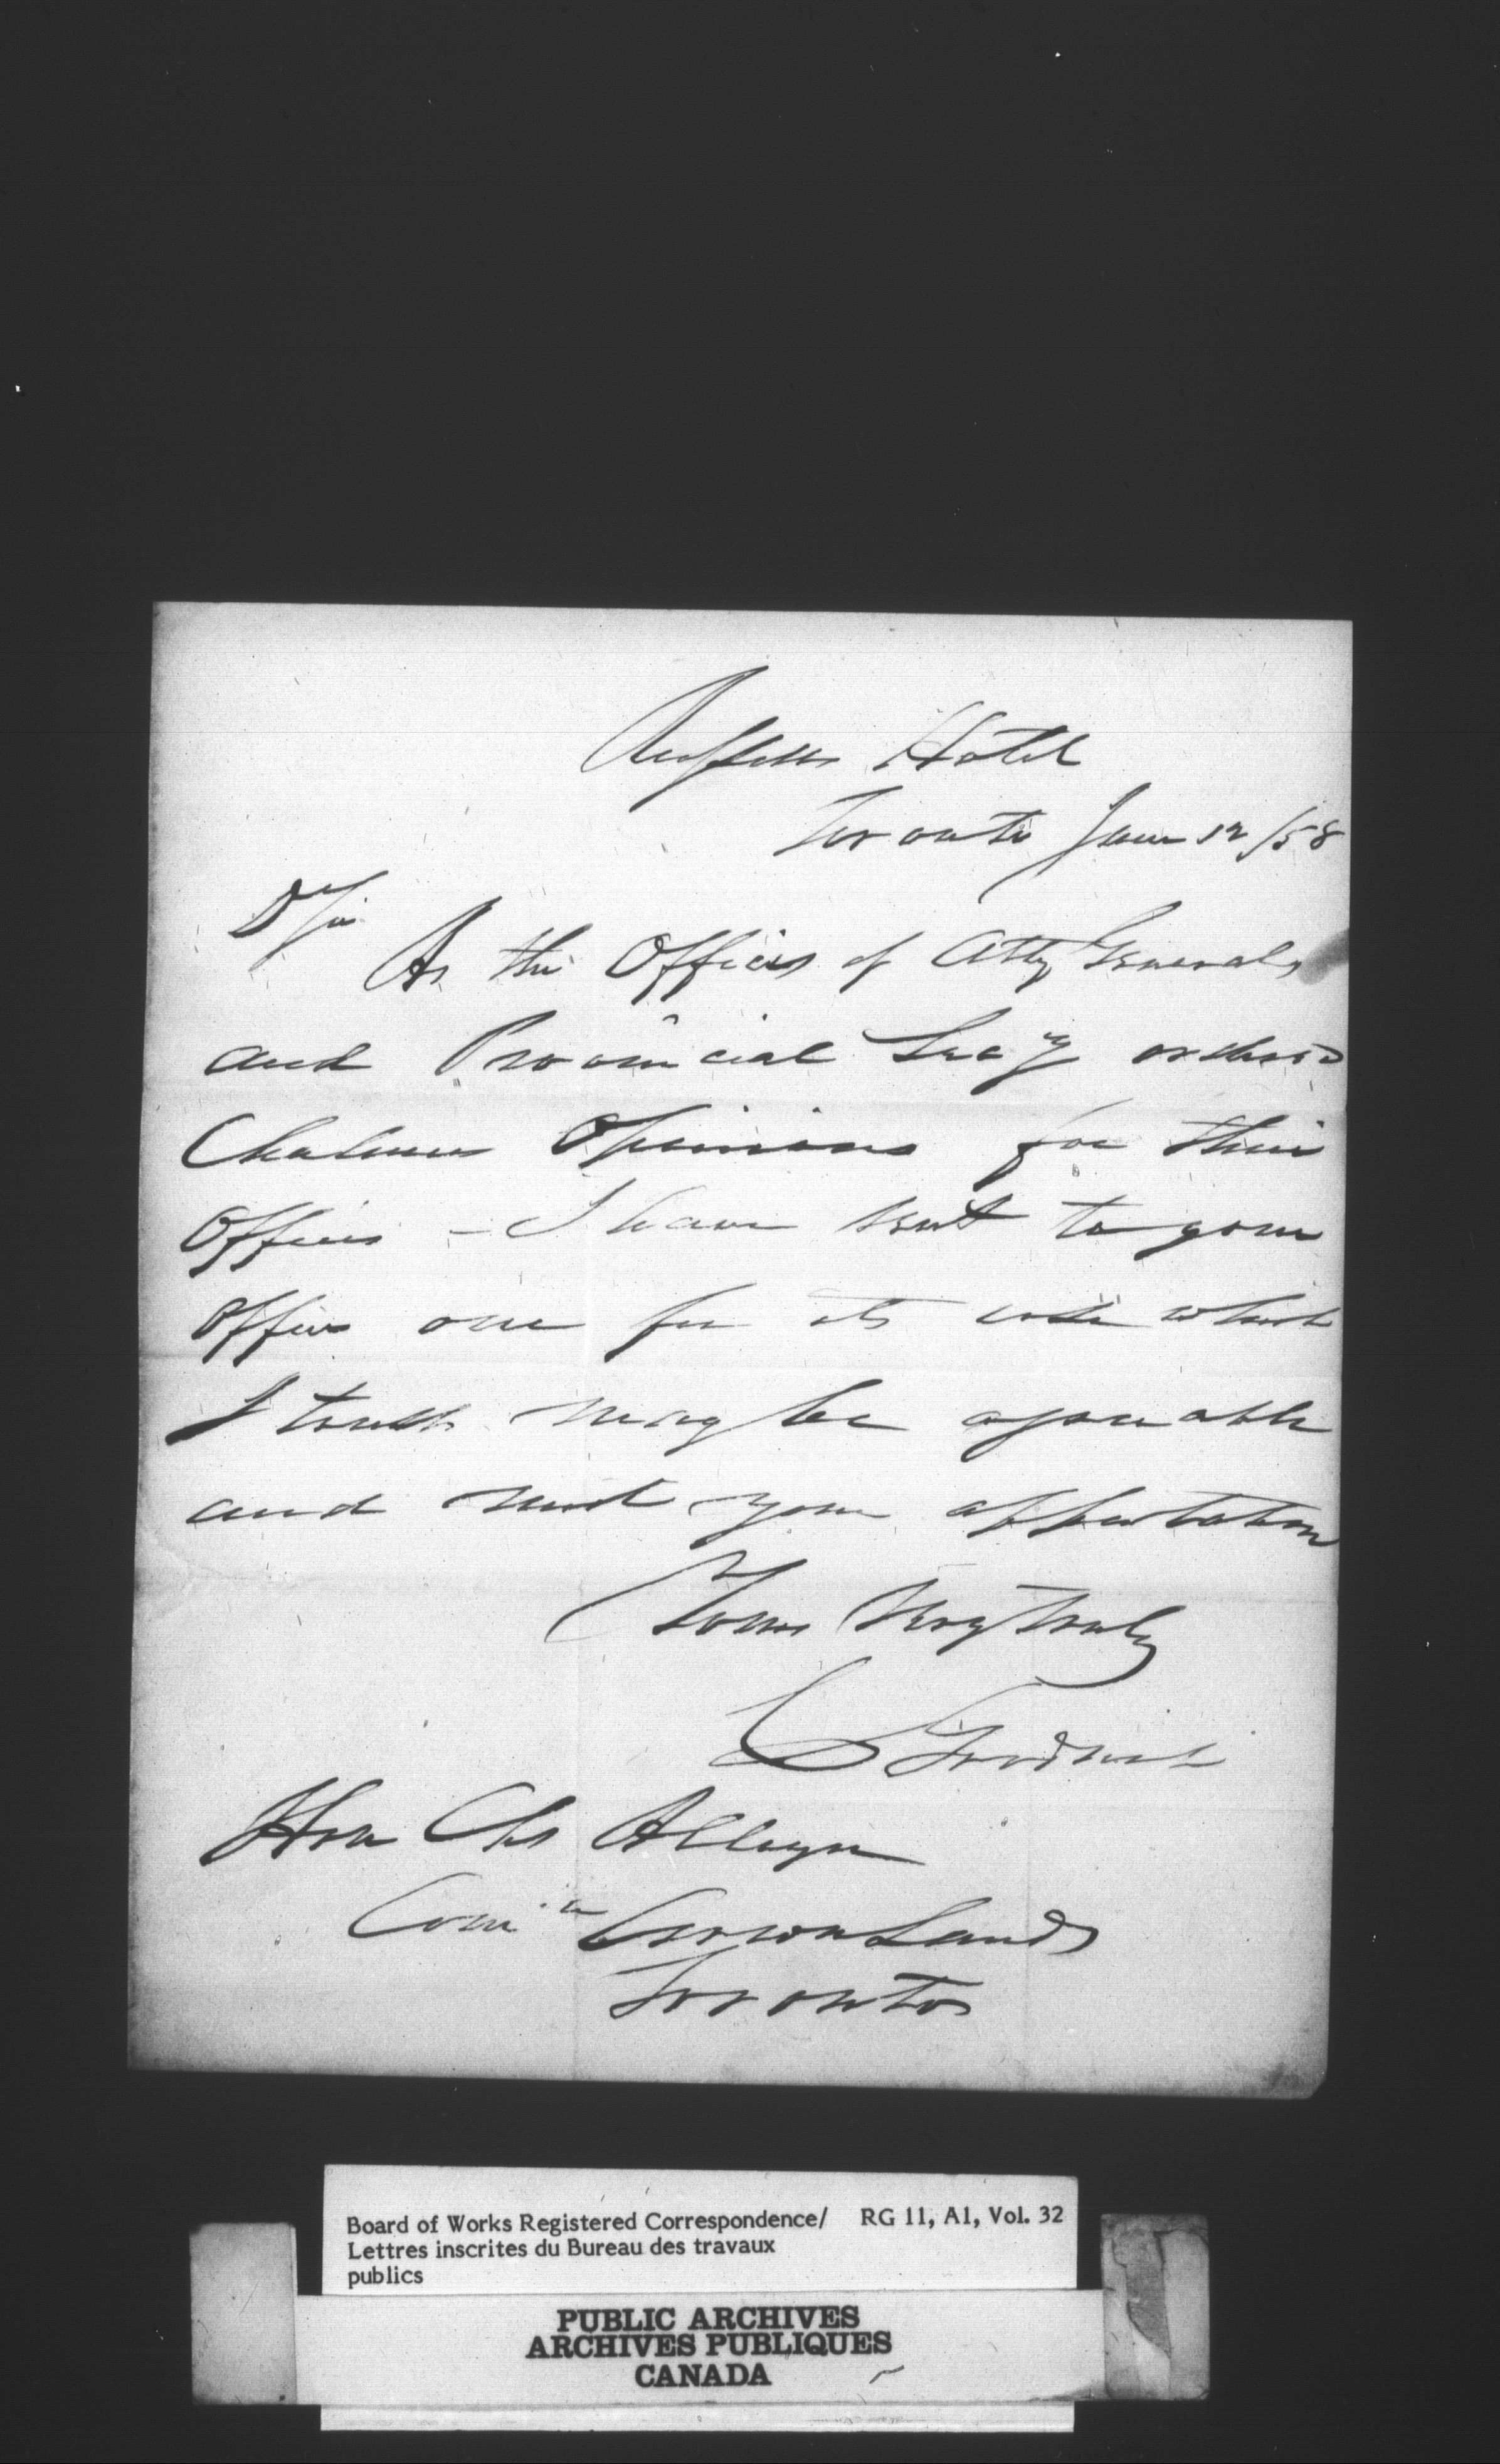 Russells Hotel
Toronto Jany 12/58
D Sir
As the Offices of Atty Generals
and Provincial Secy ordered
Chalmers Opinions for their
Offices - I have sent to your
Office one for its use which
I trust may be agreeable
and meet your approbation
Yours Very truly
C Goodrich
Hon Chs Alleyn
Comr Crown Lands
Toronto
Board of Works Registered Correspondence/ RG 11, A1, Vol. 32
Lettres inscrites du Bureau des travaux
publics
PUBLIC ARCHIVES
ARCHIVES PUBLIQUES
CANADA